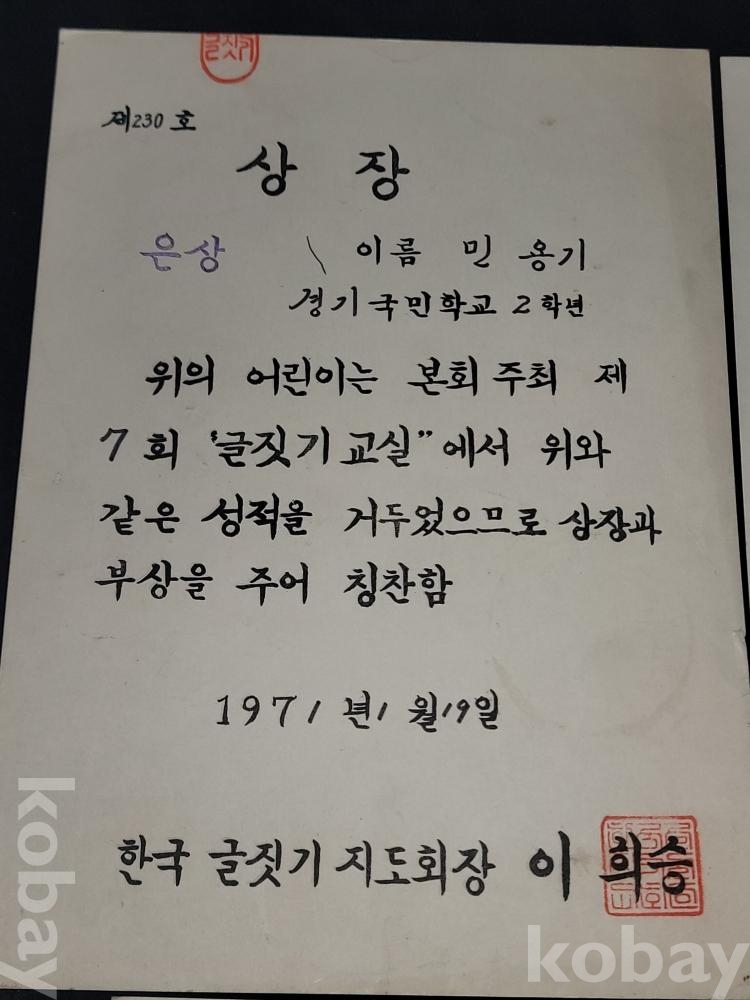 글짓기
제230호
상 장
은상 이름 민 용기
경기국민학교 2학년
위의 어린이는 본회 주최 제
7회 "글짓기 교실"에서 위와
같은 성적을 거두었으므로 상장과
부상을 주어 칭찬함
1971년 1월 19일
한국 글짓기 지도회장 이 희승
kobay
kobay